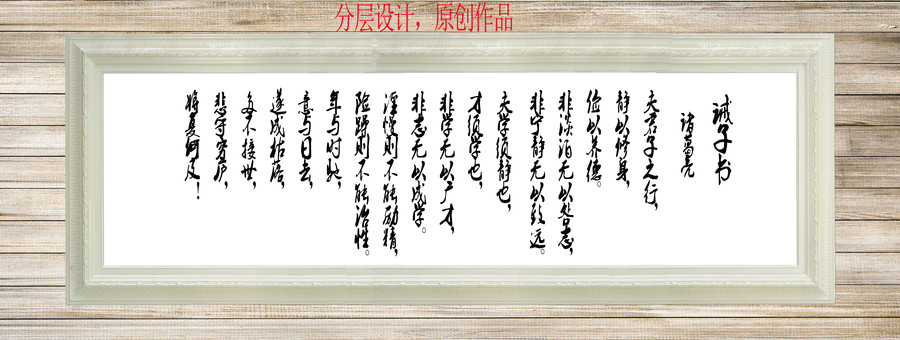 分层设计，原创作品
诫子书
诸葛亮
夫君子之行，
静以修身，
俭以养德。
非淡泊无以明志，
非宁静无以致远。
夫学须静也，
才须学也，
非学无以广才，
非志无以成学。
淫慢则不能励精，
险躁则不能治性。
年与时驰，
意与日去，
遂成枯落，
多不接世，
悲守穷庐，
将复何及！